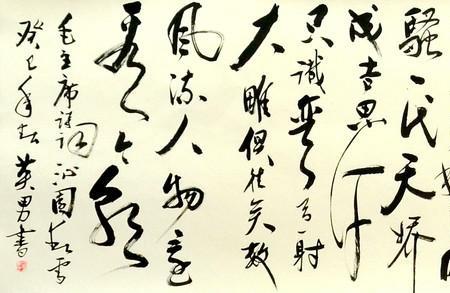 騷一代天骄
成吉思汗
只識彎弓射
大雕俱往矣数
风流人物还
看今朝
毛主席诗词沁园春雪
癸巳年英男書